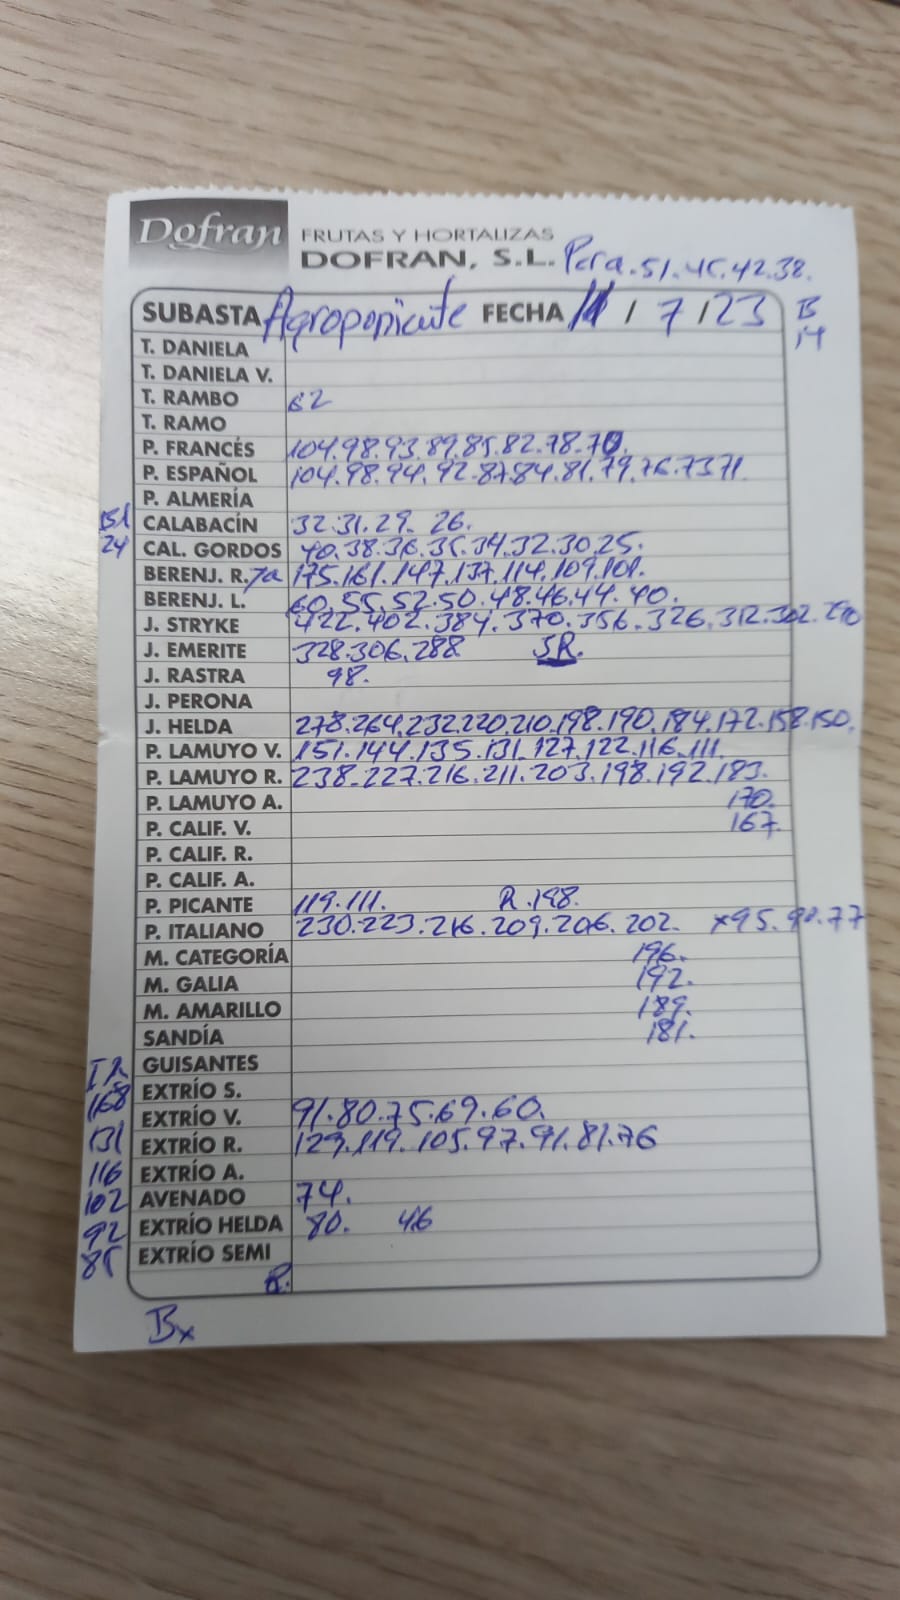 Dofran FRUTAS Y HORTALIZAS
DOFRAN, S.L. Pera. 51. 45. 42. 38.
SUBASTA Agroponiente FECHA 11 / 7 / 23 B
14
T. DANIELA
T. DANIELA V.
T. RAMBO 62
T. RAMO
P. FRANCÉS 104. 98. 93. 89. 85. 82. 78. 70.
P. ESPAÑOL 104. 98. 94. 92. 87. 84. 81. 79. 76. 73 71.
P. ALMERÍA
Bl CALABACÍN 32. 31. 29. 26.
24 CAL. GORDOS 40. 38. 36. 35. 34. 32. 30. 25.
BERENJ. R. 7a 175. 161. 147. 137. 114. 109. 101.
BERENJ. L. 60. 55. 52. 50. 48. 46. 44. 40.
J. STRYKE 422. 402. 384. 370. 356. 326. 312. 302. 290
J. EMERITE 328. 306. 288 SR.
J. RASTRA 98.
J. PERONA
J. HELDA 278. 264. 232. 220. 210. 198. 190. 184. 172. 158. 150.
P. LAMUYO V. 151. 144. 135. 131. 127. 122. 116. 111.
P. LAMUYO R. 238. 227. 216. 211. 203. 198. 192. 183.
P. LAMUYO A. 170.
P. CALIF. V. 167.
P. CALIF. R.
P. CALIF. A.
P. PICANTE 119. 111. R. 198.
P. ITALIANO 230. 223. 216. 209. 206. 202. x 95. 90. 77
M. CATEGORÍA 196.
M. GALIA 192.
M. AMARILLO 189.
SANDÍA 181.
GUISANTES
168 EXTRÍO S.
EXTRÍO V. 91. 80. 75. 69. 60.
131 EXTRÍO R. 129. 119. 105. 97. 91. 81. 76
116 EXTRÍO A.
102 AVENADO 74.
92 EXTRÍO HELDA 80. 46
85 EXTRÍO SEMI
R.
Bx